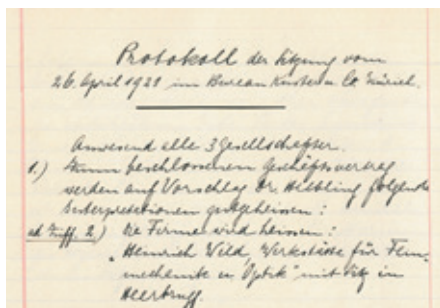 Protokoll der Sitzung vom
26. April 1921 im Bureau Kuster u. Co. Zürich.
Anwesend alle 3 Gesellschafter.
1.) beschlossenen Geschäftsvertrag
werden auf Vorschlag Dr. Helbling folgende
Interpretationen gutgeheissen:
ad Ziff. 2.) Die Firma wird heissen:
"Heinrich Wild, Werkstätte für Fein-
mechanik u. Optik" mit Sitz in
Heerbrugg.